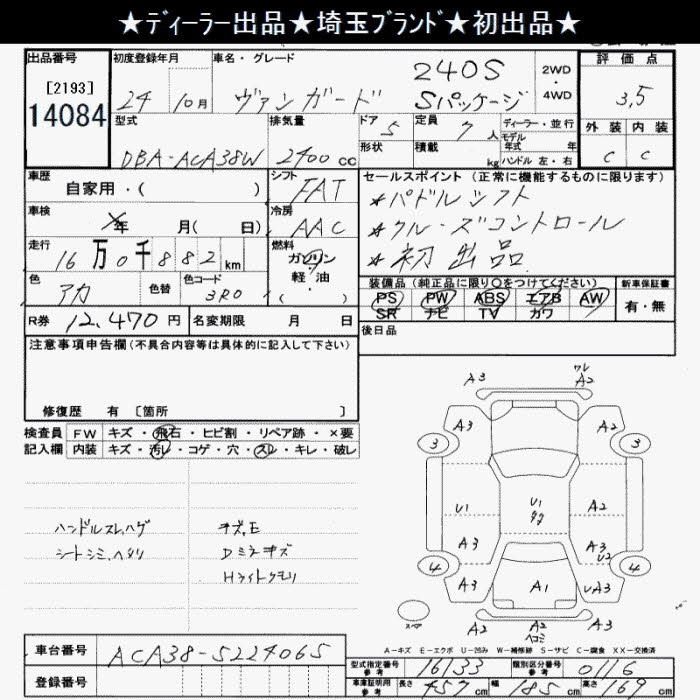 ★ディーラー出品★埼玉ブランド★初出品★
出品番号 初度登録年月 車名・グレード 評価点
[2193] 240S 2WD
14084 24 10月 ヴァンガード Sパッケージ 4WD 3.5
型式 排気量 ドア 定員 ディーラー・並行 外装 内装
DBA-ACA38W 2400cc 5 7人 モデル年式 年
形状 積載 kg ハンドル 左・右 C C
車歴 シフト セールスポイント(正常に機能するものに限ります)
自家用・( ) FAT ★パドルシフト
車検 冷房 ★クルーズコントロール
年 月( 日) AAC ★初出品
走行 燃料
16万0千882km ガソリン
軽・油
色 色替 色コード 装備品(純正品に限り○をつけてください) 新車保証書
アカ 3R0 ( ) PS PW ABS エアB AW 有・無
SR ナビ TV カワ
R券 12,470円 名変期限 月 日 後日品
注意事項申告欄(不具合内容等は具体的に記入して下さい)
修復歴 有 [箇所 ]
検査員 FW キズ・飛石・ヒビ割・リペア跡・×要
記入欄 内装 キズ・汚レ・コゲ・穴・スレ・キレ・破レ
ハンドルスレ,ハゲ キズ,E
シートシミ,ヘタリ Dミラーキズ
Hライトクモリ
A3 ワレ A2
A3 A2
3 3
U1 U1 A2
A3 A3 U2
4 4
A3 A1 UA3
スペア A2 A2 ヘコミ A3 A2
A-キズ E-エクボ U-凹み W-補修跡 S-サビ C-腐食 XX-交換済
車台番号 ACA38-5224065
登録番号
型式指定番号 参考 16133 類別区分番号 参考 0116
車庫証明用 参考 長さ 457cm 幅 185cm 高さ 169cm